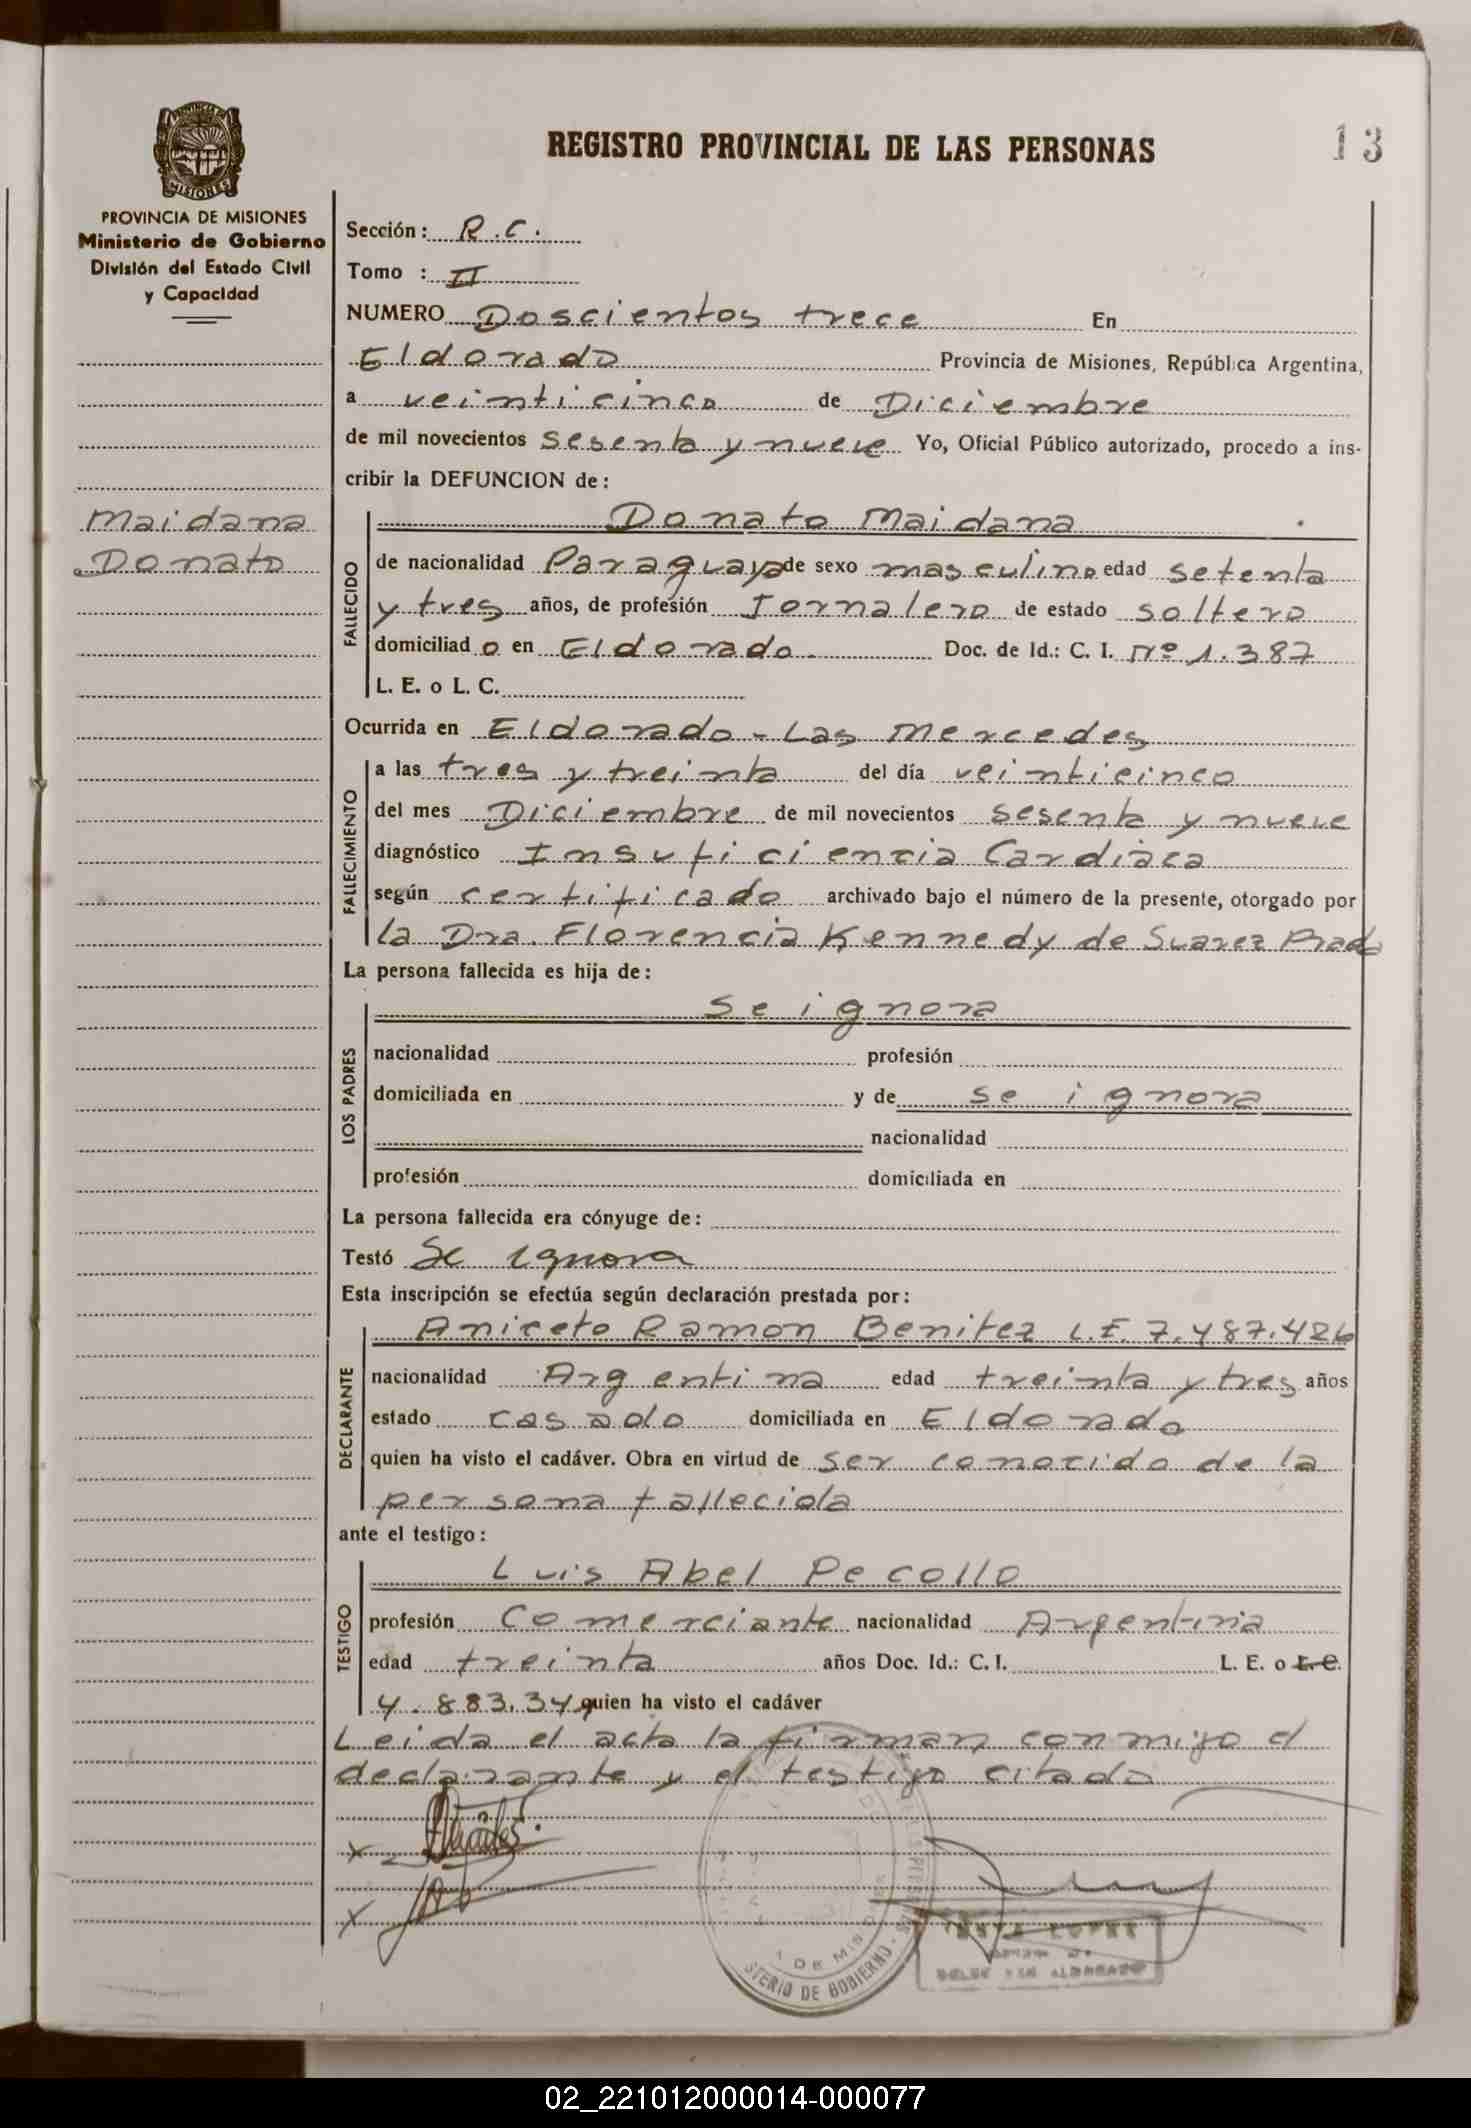 PROVINCIA DE MISIONES
Ministerio de Gobierno
División del Estado Civil
y Capacidad
Maidana
Donato
REGISTRO PROVINCIAL DE LAS PERSONAS
13
Sección: R.C.
Tomo : II
NUMERO Doscientos trece En
Eldorado Provincia de Misiones, República Argentina,
a veinticinco de Diciembre
de mil novecientos sesenta y nueve Yo, Oficial Público autorizado, procedo a ins-
cribir la DEFUNCION de:
FALLECIDO
Donato Maidana
de nacionalidad Paraguaya de sexo masculino edad setenta
y tres años, de profesión Jornalero de estado soltero
domiciliado en Eldorado. Doc. de Id.: C. I. Nº 1.387
L. E. o L. C.
Ocurrida en Eldorado - Las Mercedes
FALLECIMIENTO
a las tres y treinta del día veinticinco
del mes Diciembre de mil novecientos sesenta y nueve
diagnóstico Insuficiencia Cardiaca
según certificado archivado bajo el número de la presente, otorgado por
la Dra. Florencia Kennedy de Suarez Prado
La persona fallecida es hija de:
LOS PADRES
se ignora
nacionalidad profesión
domiciliada en y de se ignora
nacionalidad
profesión domiciliada en
La persona fallecida era cónyuge de:
Testó Se ignora
Esta inscripción se efectúa según declaración prestada por:
DECLARANTE
Aniceto Ramon Benitez L.E. 7.487.426
nacionalidad Argentina edad treinta y tres años
estado casado domiciliada en Eldorado
quien ha visto el cadáver. Obra en virtud de ser conocido de la
persona fallecida
ante el testigo:
TESTIGO
Luis Abel Pecollo
profesión Comerciante nacionalidad Argentina
edad treinta años Doc. Id.: C. I. L. E. o L. C.
quien ha visto el cadáver
Leida el acta la firman conmigo el
declarante y el testigo citado
x
x
STERIO DE GOBIERNO
LOPEZ
02_221012000014-000077